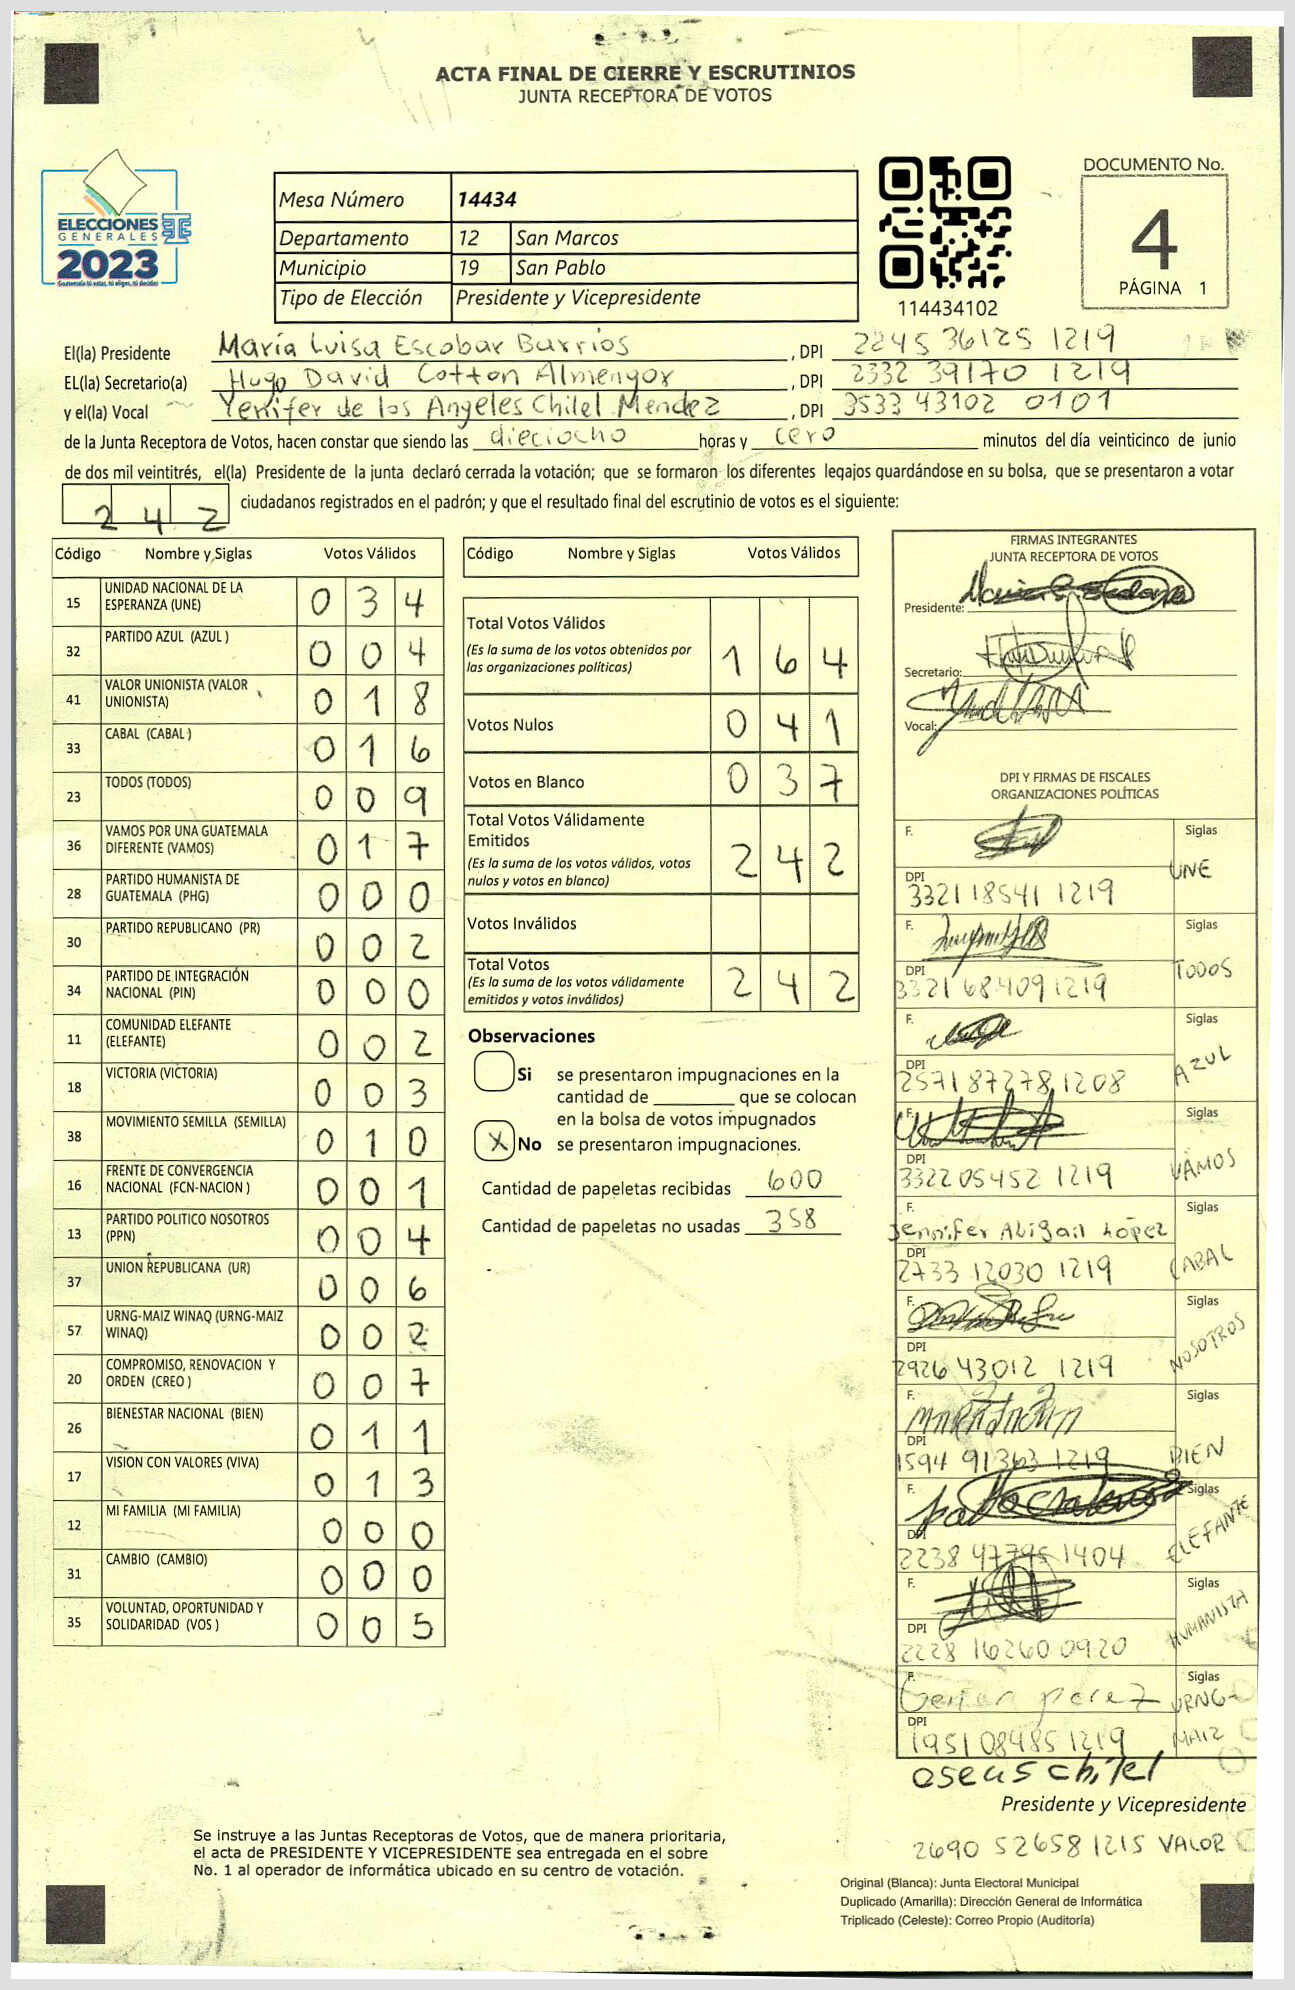 ACTA FINAL DE CIERRE Y ESCRUTINIOS
JUNTA RECEPTORA DE VOTOS
ELECCIONES
GENERALES
2023
Mesa Número 14434
Departamento 12 San Marcos
Municipio 19 San Pablo
Tipo de Elección Presidente y Vicepresidente
114434102
DOCUMENTO No.
4
PÁGINA 1
El(la) Presidente María Luisa Escobar Barrios , DPI 2245 36125 1219
EL(la) Secretario(a) Hugo David Cotton Almengor , DPI 2332 39170 1219
y el(la) Vocal Yenifer de los Angeles Chilel Mendez , DPI 3533 43102 0101
de la Junta Receptora de Votos, hacen constar que siendo las dieciocho horas y cero minutos del día veinticinco de junio
de dos mil veintitrés, el(la) Presidente de la junta declaró cerrada la votación; que se formaron los diferentes legajos guardándose en su bolsa, que se presentaron a votar
242 ciudadanos registrados en el padrón; y que el resultado final del escrutinio de votos es el siguiente:
Código Nombre y Siglas Votos Válidos
15 UNIDAD NACIONAL DE LA
ESPERANZA (UNE) 0 3 4
32 PARTIDO AZUL (AZUL ) 0 0 4
41 VALOR UNIONISTA (VALOR
UNIONISTA) 0 1 8
33 CABAL (CABAL ) 0 1 6
23 TODOS (TODOS) 0 0 9
36 VAMOS POR UNA GUATEMALA
DIFERENTE (VAMOS) 0 1 7
28 PARTIDO HUMANISTA DE
GUATEMALA (PHG) 0 0 0
30 PARTIDO REPUBLICANO (PR) 0 0 2
34 PARTIDO DE INTEGRACIÓN
NACIONAL (PIN) 0 0 0
11 COMUNIDAD ELEFANTE
(ELEFANTE) 0 0 2
18 VICTORIA (VICTORIA) 0 0 3
38 MOVIMIENTO SEMILLA (SEMILLA) 0 1 0
16 FRENTE DE CONVERGENCIA
NACIONAL (FCN-NACION ) 0 0 1
13 PARTIDO POLITICO NOSOTROS
(PPN) 0 0 4
37 UNION REPUBLICANA (UR) 0 0 6
57 URNG-MAIZ WINAQ (URNG-MAIZ
WINAQ) 0 0 2
20 COMPROMISO, RENOVACION Y
ORDEN (CREO ) 0 0 7
26 BIENESTAR NACIONAL (BIEN) 0 1 1
17 VISION CON VALORES (VIVA) 0 1 3
12 MI FAMILIA (MI FAMILIA) 0 0 0
31 CAMBIO (CAMBIO) 0 0 0
35 VOLUNTAD, OPORTUNIDAD Y
SOLIDARIDAD (VOS ) 0 0 5
Código Nombre y Siglas Votos Válidos
Total Votos Válidos
(Es la suma de los votos obtenidos por
las organizaciones políticas) 1 6 4
Votos Nulos 0 4 1
Votos en Blanco 0 3 7
Total Votos Válidamente
Emitidos
(Es la suma de los votos válidos, votos
nulos y votos en blanco) 2 4 2
Votos Inválidos
Total Votos
(Es la suma de los votos válidamente
emitidos y votos inválidos) 2 4 2
Observaciones
Si se presentaron impugnaciones en la
cantidad de ________ que se colocan
en la bolsa de votos impugnados
X No se presentaron impugnaciones.
Cantidad de papeletas recibidas 600
Cantidad de papeletas no usadas 358
FIRMAS INTEGRANTES
JUNTA RECEPTORA DE VOTOS
Presidente:
Secretario:
Vocal:
DPI Y FIRMAS DE FISCALES
ORGANIZACIONES POLÍTICAS
F. Siglas
UNE
DPI
3321 18541 1219
F. Siglas
TODOS
DPI
3321 68409 1219
F. Siglas
AZUL
DPI
2571 87278 1208
F. Siglas
VAMOS
DPI
3322 05452 1219
F. Siglas
Jennifer Abigail López
CABAL
DPI
2733 12030 1219
F. Siglas
NOSOTROS
DPI
2926 43012 1219
F. Siglas
BIEN
DPI
1594 91363 1219
F. Siglas
ELEFANTE
DPI
2238 47795 1404
F. Siglas
HUMANISTA
DPI
2228 16260 0920
F. Siglas
perez URNG-
MAIZ
DPI
1951 08485 1219
oseas chilel
Presidente y Vicepresidente
2690 52658 1215 VALOR
Se instruye a las Juntas Receptoras de Votos, que de manera prioritaria,
el acta de PRESIDENTE Y VICEPRESIDENTE sea entregada en el sobre
No. 1 al operador de informática ubicado en su centro de votación.
Original (Blanca): Junta Electoral Municipal
Duplicado (Amarilla): Dirección General de Informática
Triplicado (Celeste): Correo Propio (Auditoría)